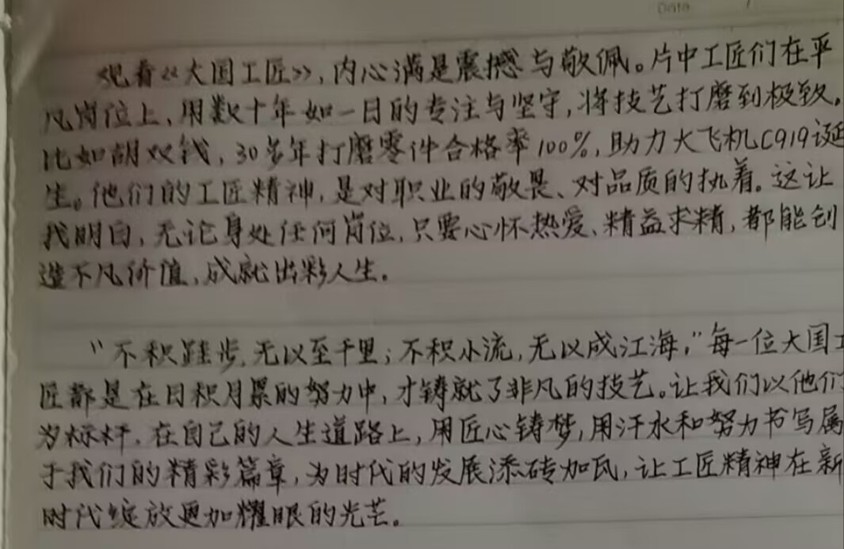 Date
观看《大国工匠》,内心满是震撼与敬佩。片中工匠们在平
凡岗位上,用数十年如一日的专注与坚守,将技艺打磨到极致。
比如胡双钱,30多年打磨零件合格率100%,助力大飞机C919诞
生。他们的工匠精神,是对职业的敬畏、对品质的执着。这让
我明白,无论身处任何岗位,只要心怀热爱、精益求精,都能创
造不凡价值,成就出彩人生。
“不积跬步,无以至千里;不积小流,无以成江海,”每一位大国工
匠都是在日积月累的努力中,才铸就了非凡的技艺。让我们以他们
为标杆,在自己的人生道路上,用匠心铸梦,用汗水和努力书写属
于我们的精彩篇章,为时代的发展添砖加瓦,让工匠精神在新
时代绽放更加耀眼的光芒。